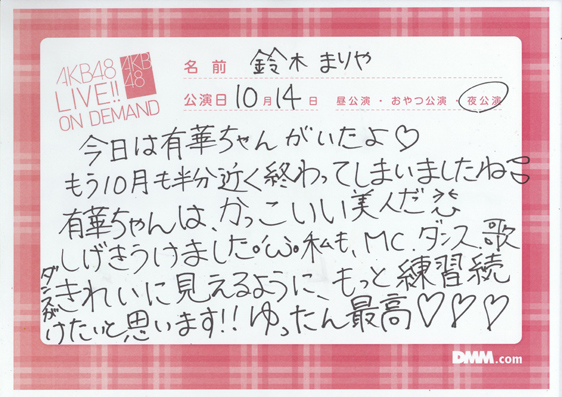 AKB48
LIVE!!
ON DEMAND
AKB
48
名前 鈴木まりや
公演日 10月14日 昼公演・おやつ公演・夜公演
今日は有華ちゃんがいたよ♡
もう10月も半分近く終わってしまいましたね
有華ちゃんは、かっこいい美人だ
しげきうけました°ω°私も、MC、ダンス、歌
ダンスがきれいに見えるように、もっと練習続
けたいと思います!!ゆったん最高♡♡♡
DMM.com